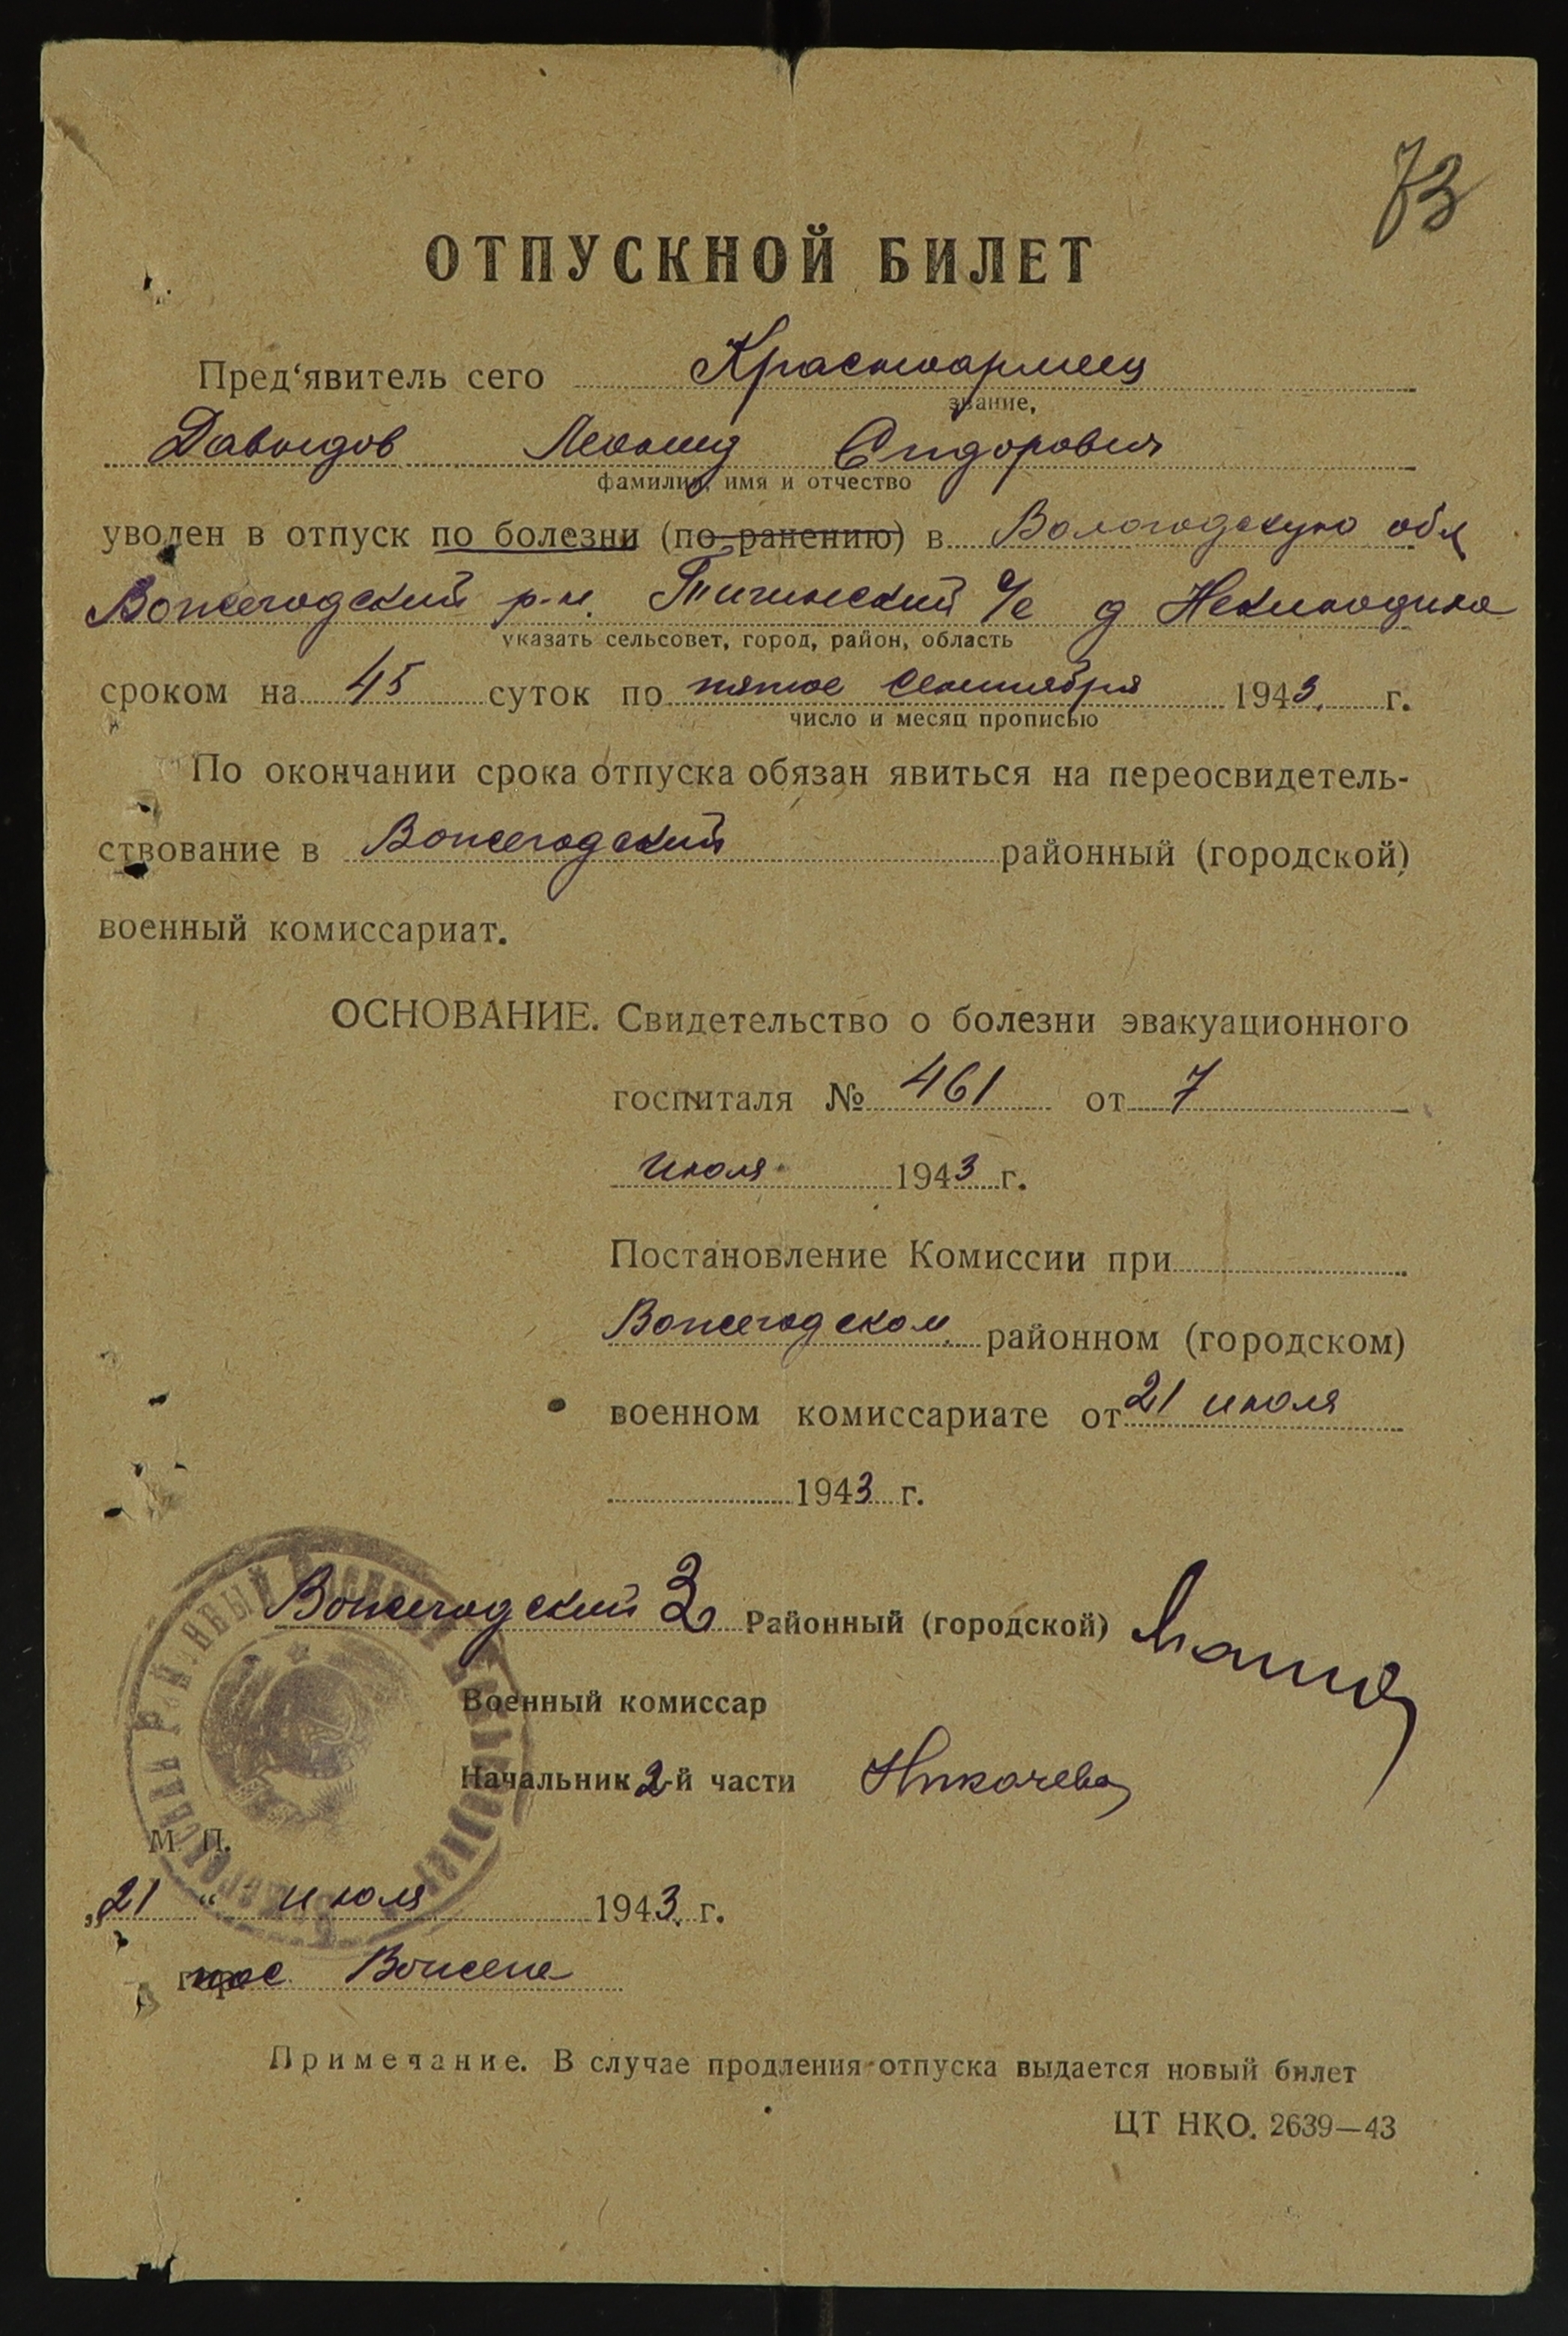 73
ОТПУСКНОЙ БИЛЕТ
Пред‘явитель сего Красноармеец
звание,
Давыдов Леонид Сидорович
фамилия, имя и отчество
уволен в отпуск по болезни (по ранению) в Вологодскую обл
Вожегодский р-н. Тигинский с/с д
указать сельсовет, город, район, область
сроком на 45 суток по пятое сентября 1943 г.
число и месяц прописью
По окончании срока отпуска обязан явиться на переосвидетель-
ствование в Вожегодский районный (городской)
военный комиссариат.
ОСНОВАНИЕ. Свидетельство о болезни эвакуационного
госпиталя № 461 от 7
июля 1943 г.
Постановление Комиссии при
Вожегодском районном (городском)
военном комиссариате от 21 июля
1943 г.
Вожегодский Районный (городской)
Военный комиссар
Начальник 2-й части
М. П.
„21“ июля 1943 г.
пос Вожега
Примечание. В случае продления отпуска выдается новый билет
ЦТ НКО. 2639—43